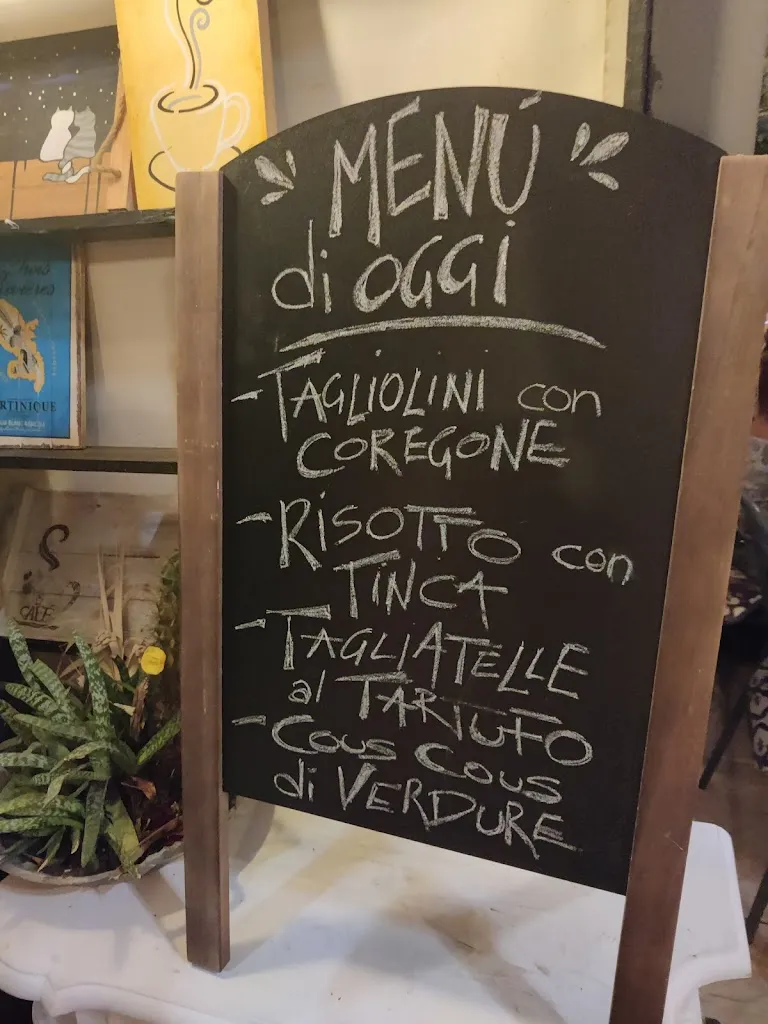 MENÚ
di OGGI
- TAGLIOLINI con
COREGONE
- RISOTTO con
TINCA
- TAGLIATELLE
al TARTUFO
- COUS COUS
di VERDURE
RTINIQUE
CAFE